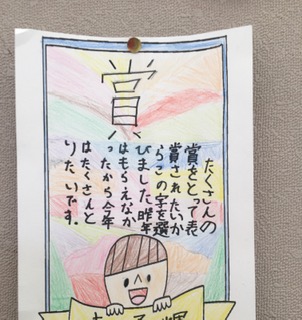 賞
たくさんの
賞をとって表
賞されたいか
らこの字を選
びました。昨年
はもらえなか
ったから今年
はたくさんと
りたいです。